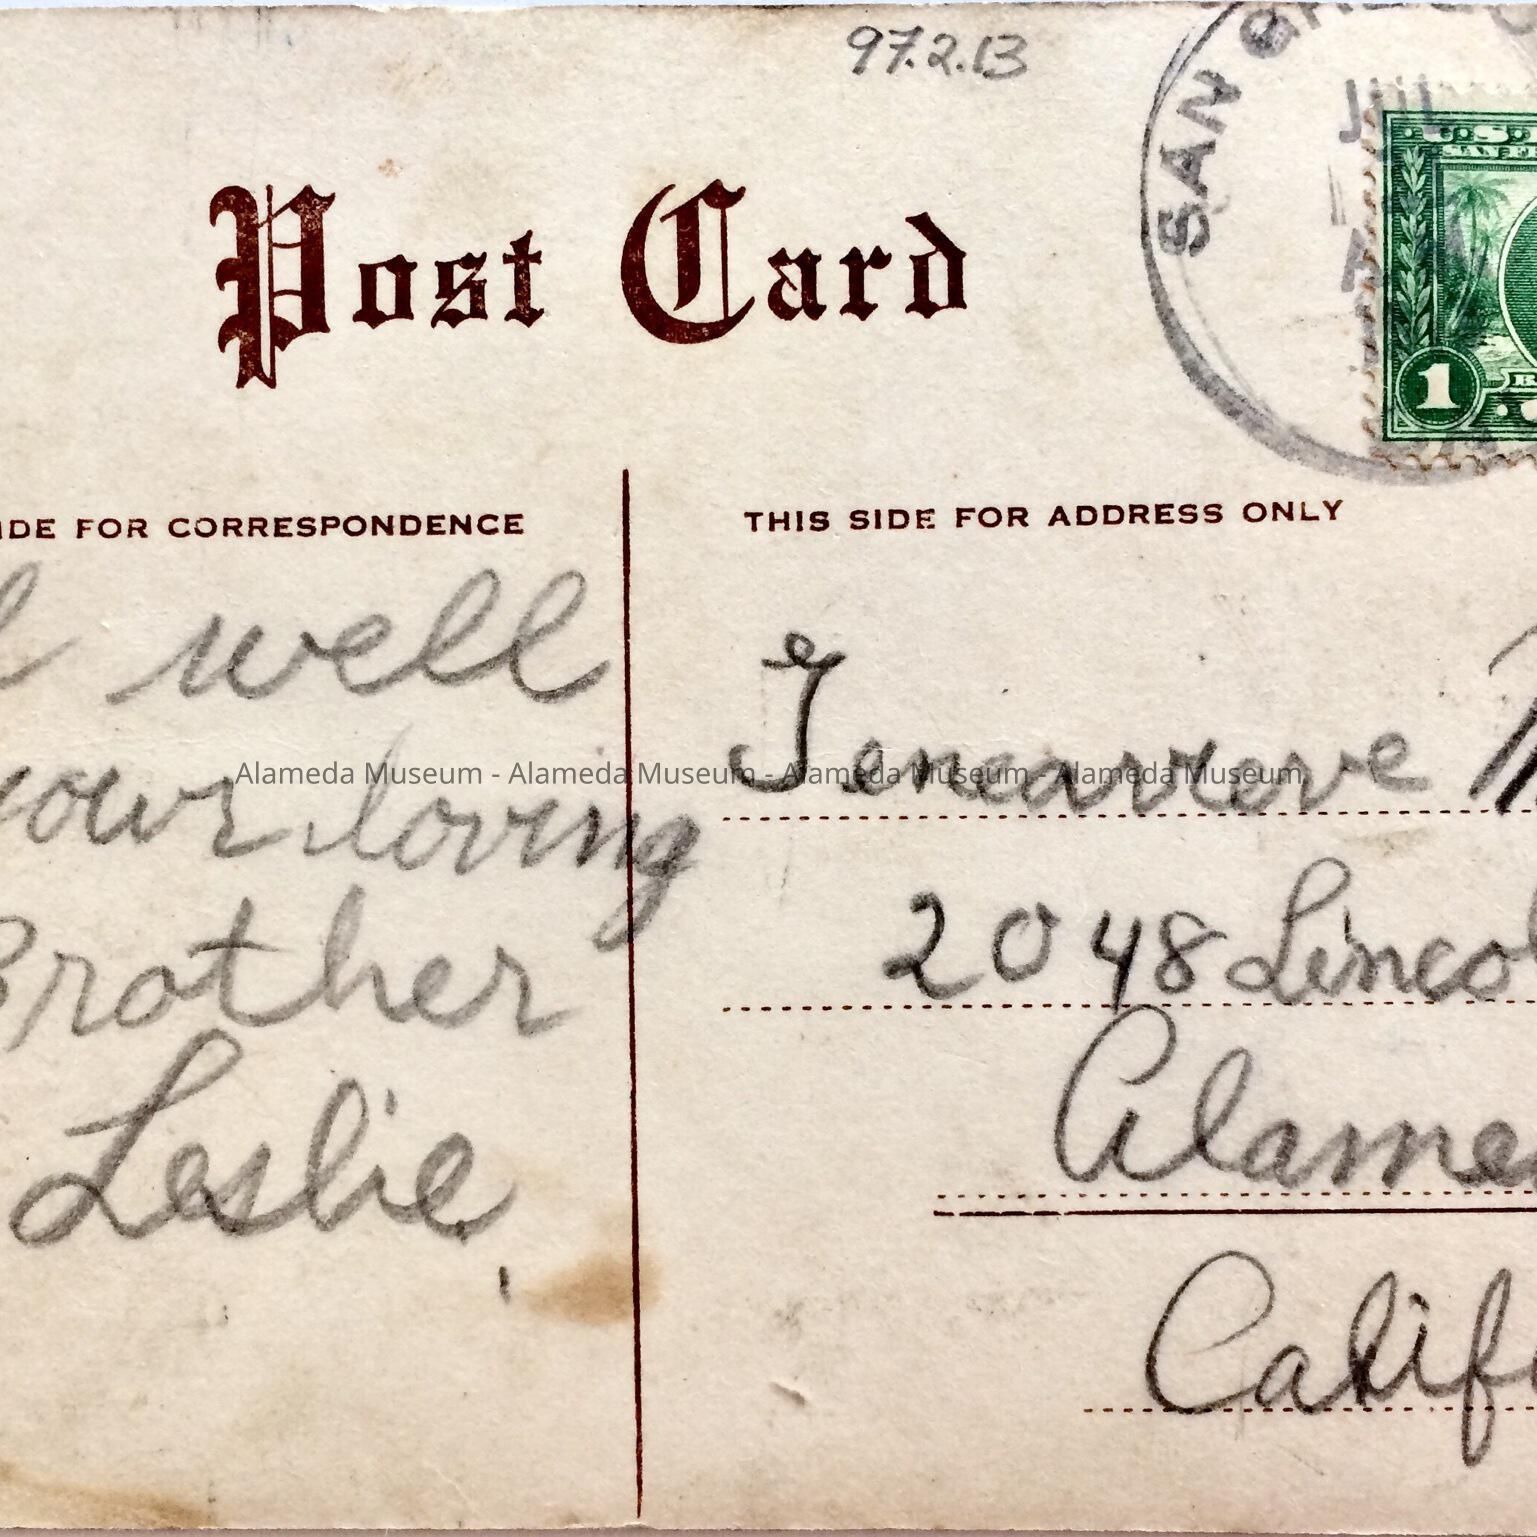 97.2.13
SAN
JUL
U.S.
Post Card
1
IDE FOR CORRESPONDENCE
THIS SIDE FOR ADDRESS ONLY
well
your loving
Brother
Leslie
Genearieve
2048 Lincol
Alame
Calif
Alameda Museum - Alameda Museum - Alameda Museum - Alameda Museum